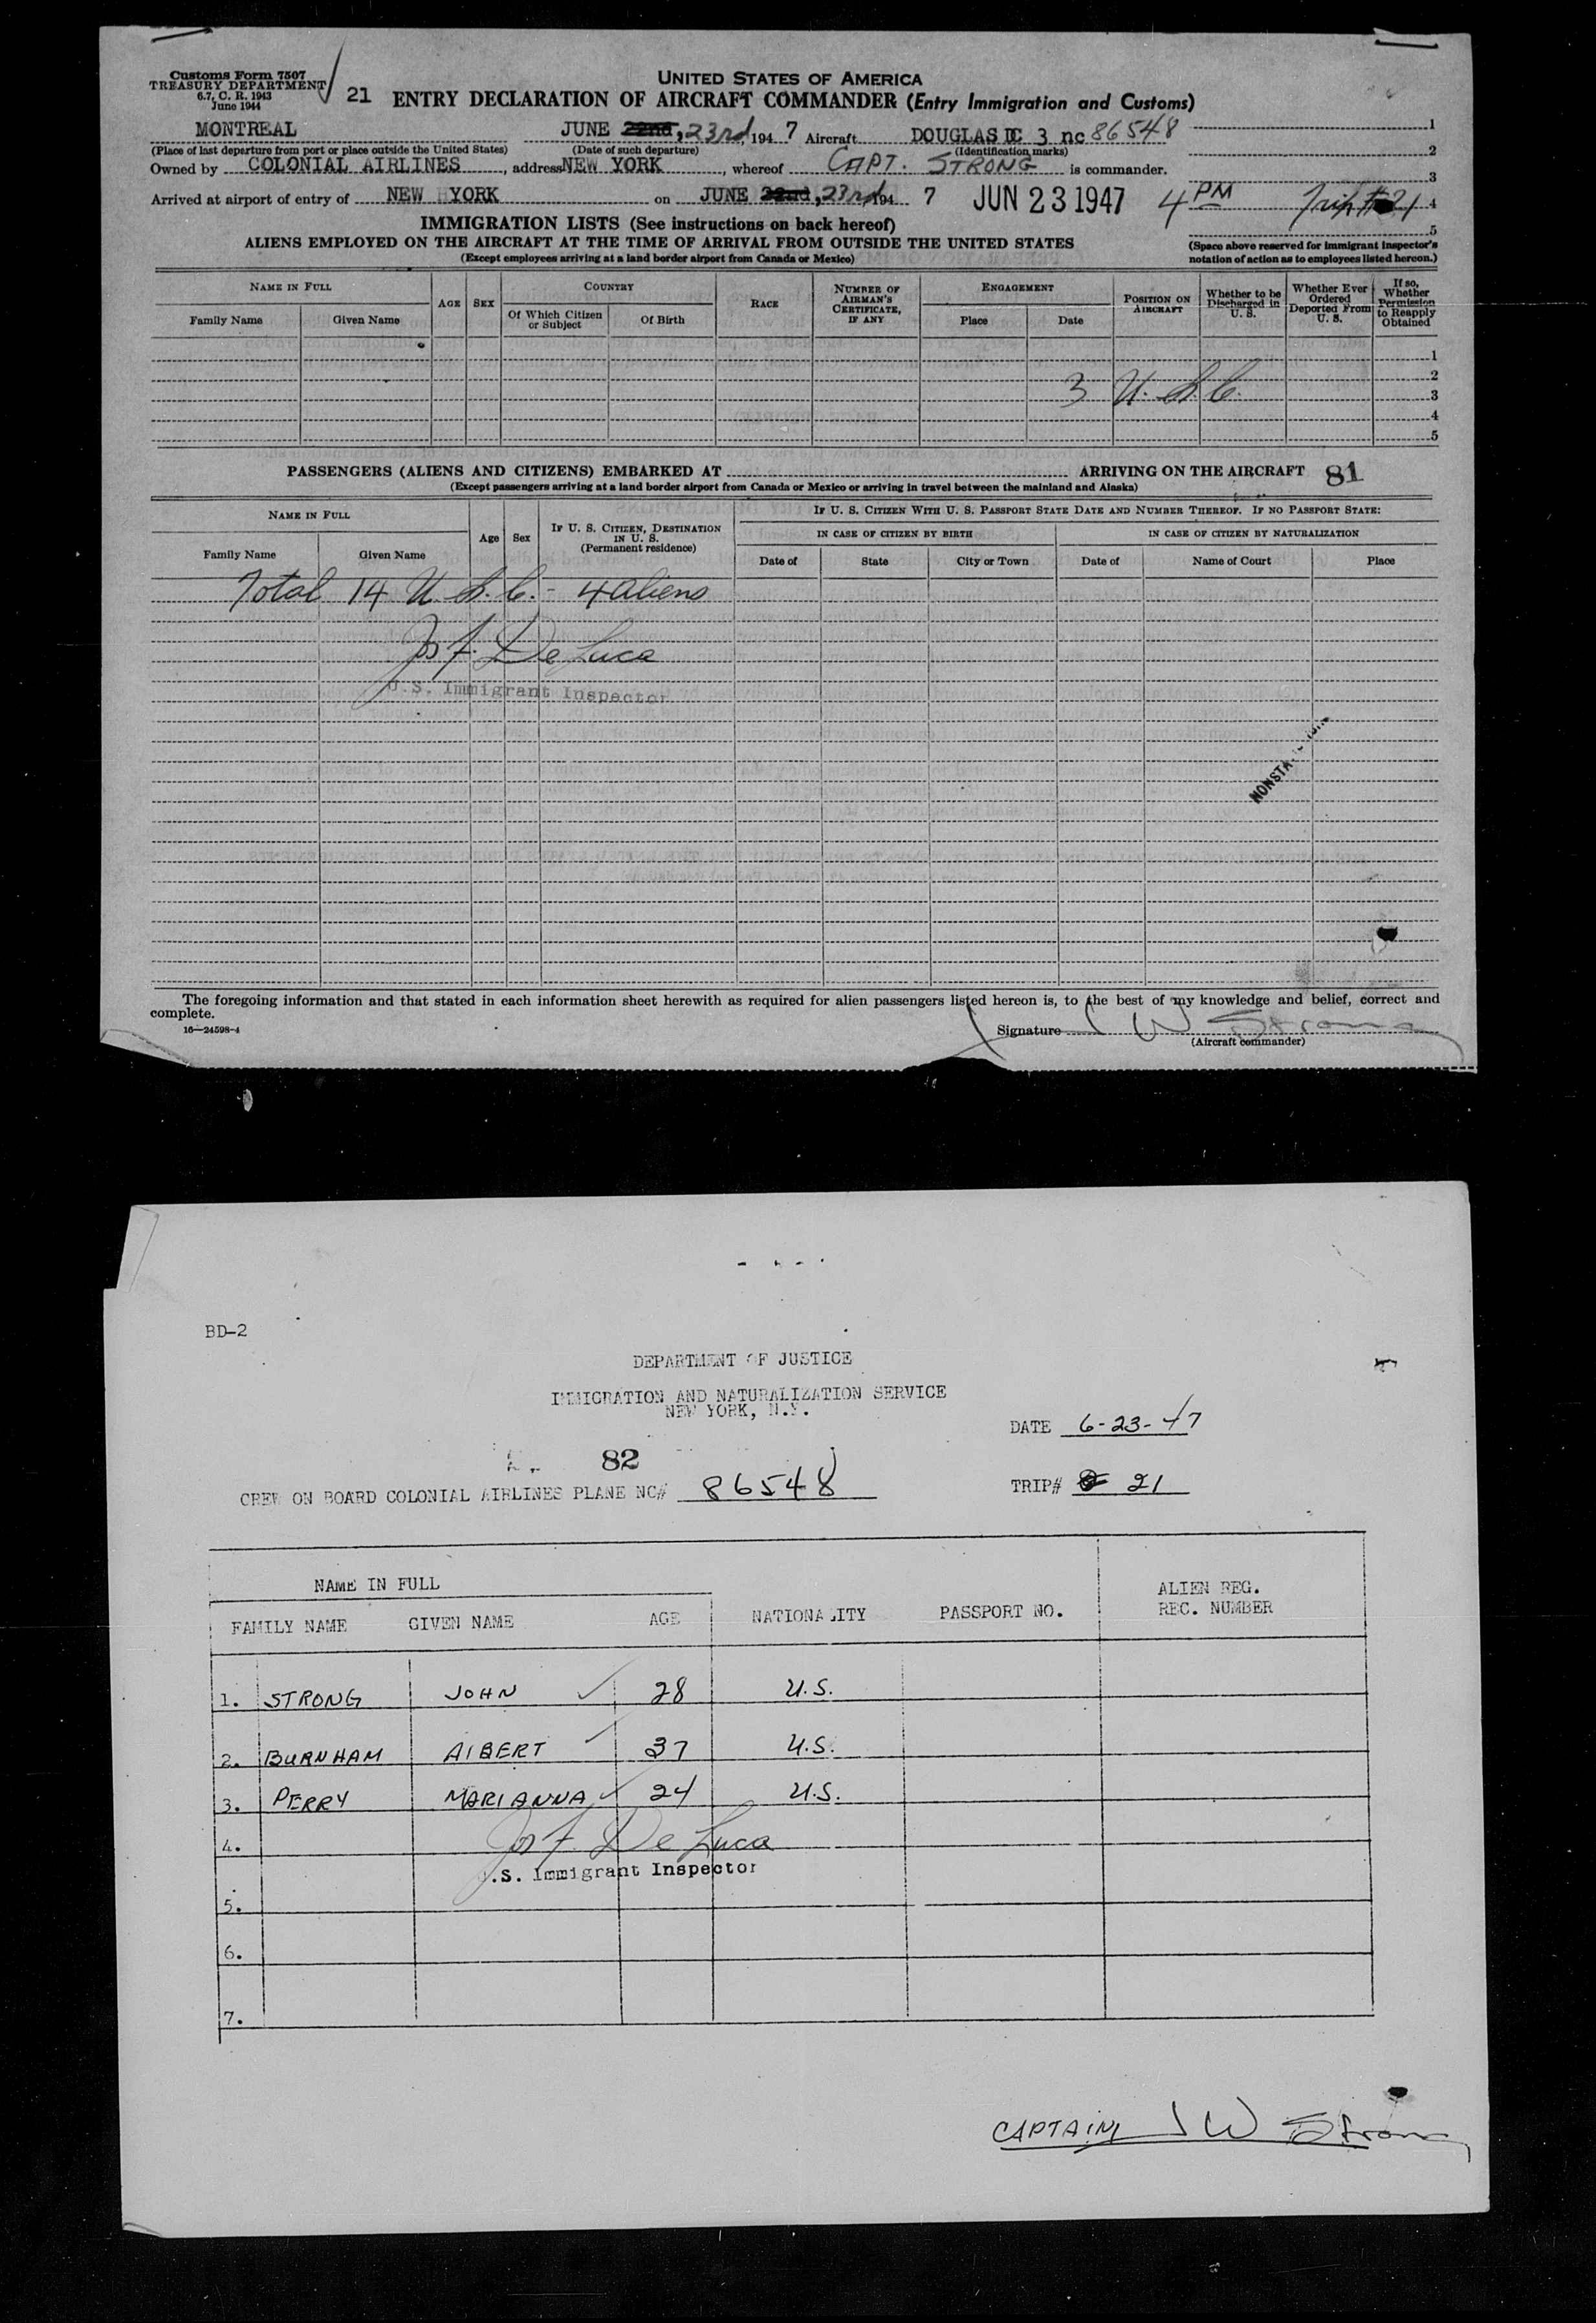 Customs Form 7507
TREASURY DEPARTMENT
6.7, C. R. 1943
June 1944
21
UNITED STATES OF AMERICA
ENTRY DECLARATION OF AIRCRAFT COMMANDER (Entry Immigration and Customs)
MONTREAL JUNE 22nd, 23rd, 194 7 Aircraft DOUGLAS DC 3 nc 86548 1
(Place of last departure from port or place outside the United States) (Date of such departure) (Identification marks) 2
Owned by COLONIAL AIRLINES, address NEW YORK, whereof CAPT. STRONG is commander. 3
Arrived at airport of entry of NEW YORK on JUNE 22nd, 23rd, 194 7 JUN 23 1947 4 PM Trip # 21 4
5
IMMIGRATION LISTS (See instructions on back hereof)
ALIENS EMPLOYED ON THE AIRCRAFT AT THE TIME OF ARRIVAL FROM OUTSIDE THE UNITED STATES
(Except employees arriving at a land border airport from Canada or Mexico)
(Space above reserved for immigrant inspector's
notation of action as to employees listed hereon.)
NAME IN FULL
Family Name Given Name
AGE
SEX
COUNTRY
Of Which Citizen or Subject
Of Birth
RACE
NUMBER OF AIRMAN'S CERTIFICATE, IF ANY
ENGAGEMENT
Place Date
POSITION ON AIRCRAFT
Whether to be Discharged in U. S.
Whether Ever Ordered Deported From U. S.
If so, Whether Permission to Reapply Obtained
1
2
3 U. S. C.
3
4
5
PASSENGERS (ALIENS AND CITIZENS) EMBARKED AT ARRIVING ON THE AIRCRAFT 81
(Except passengers arriving at a land border airport from Canada or Mexico or arriving in travel between the mainland and Alaska)
NAME IN FULL
Family Name Given Name
Age
Sex
IF U. S. CITIZEN, DESTINATION IN U. S.
(Permanent residence)
IF U. S. CITIZEN WITH U. S. PASSPORT STATE DATE AND NUMBER THEREOF. IF NO PASSPORT STATE:
IN CASE OF CITIZEN BY BIRTH IN CASE OF CITIZEN BY NATURALIZATION
Date of State City or Town Date of Name of Court Place
Total 14 U. S. C. - 4 aliens
Jos F. De Luca
U.S. Immigrant Inspector
The foregoing information and that stated in each information sheet herewith as required for alien passengers listed hereon is, to the best of my knowledge and belief, correct and
complete.
16—24598-4
Signature J W Strong
(Aircraft commander)
BD-2
DEPARTMENT OF JUSTICE
IMMIGRATION AND NATURALIZATION SERVICE
NEW YORK, N.Y.
DATE 6-23-47
82
CREW ON BOARD COLONIAL AIRLINES PLANE NC# 86548
TRIP# 21
NAME IN FULL
FAMILY NAME GIVEN NAME AGE NATIONALITY PASSPORT NO. ALIEN REG. REC. NUMBER
1. STRONG JOHN 28 U.S.
2. BURNHAM AlBERT 37 U.S.
3. PERRY MARIANNA 24 U.S.
4. Jos F. De Luca
.S. Immigrant Inspector
5.
6.
7.
CAPTAIN J W Strong